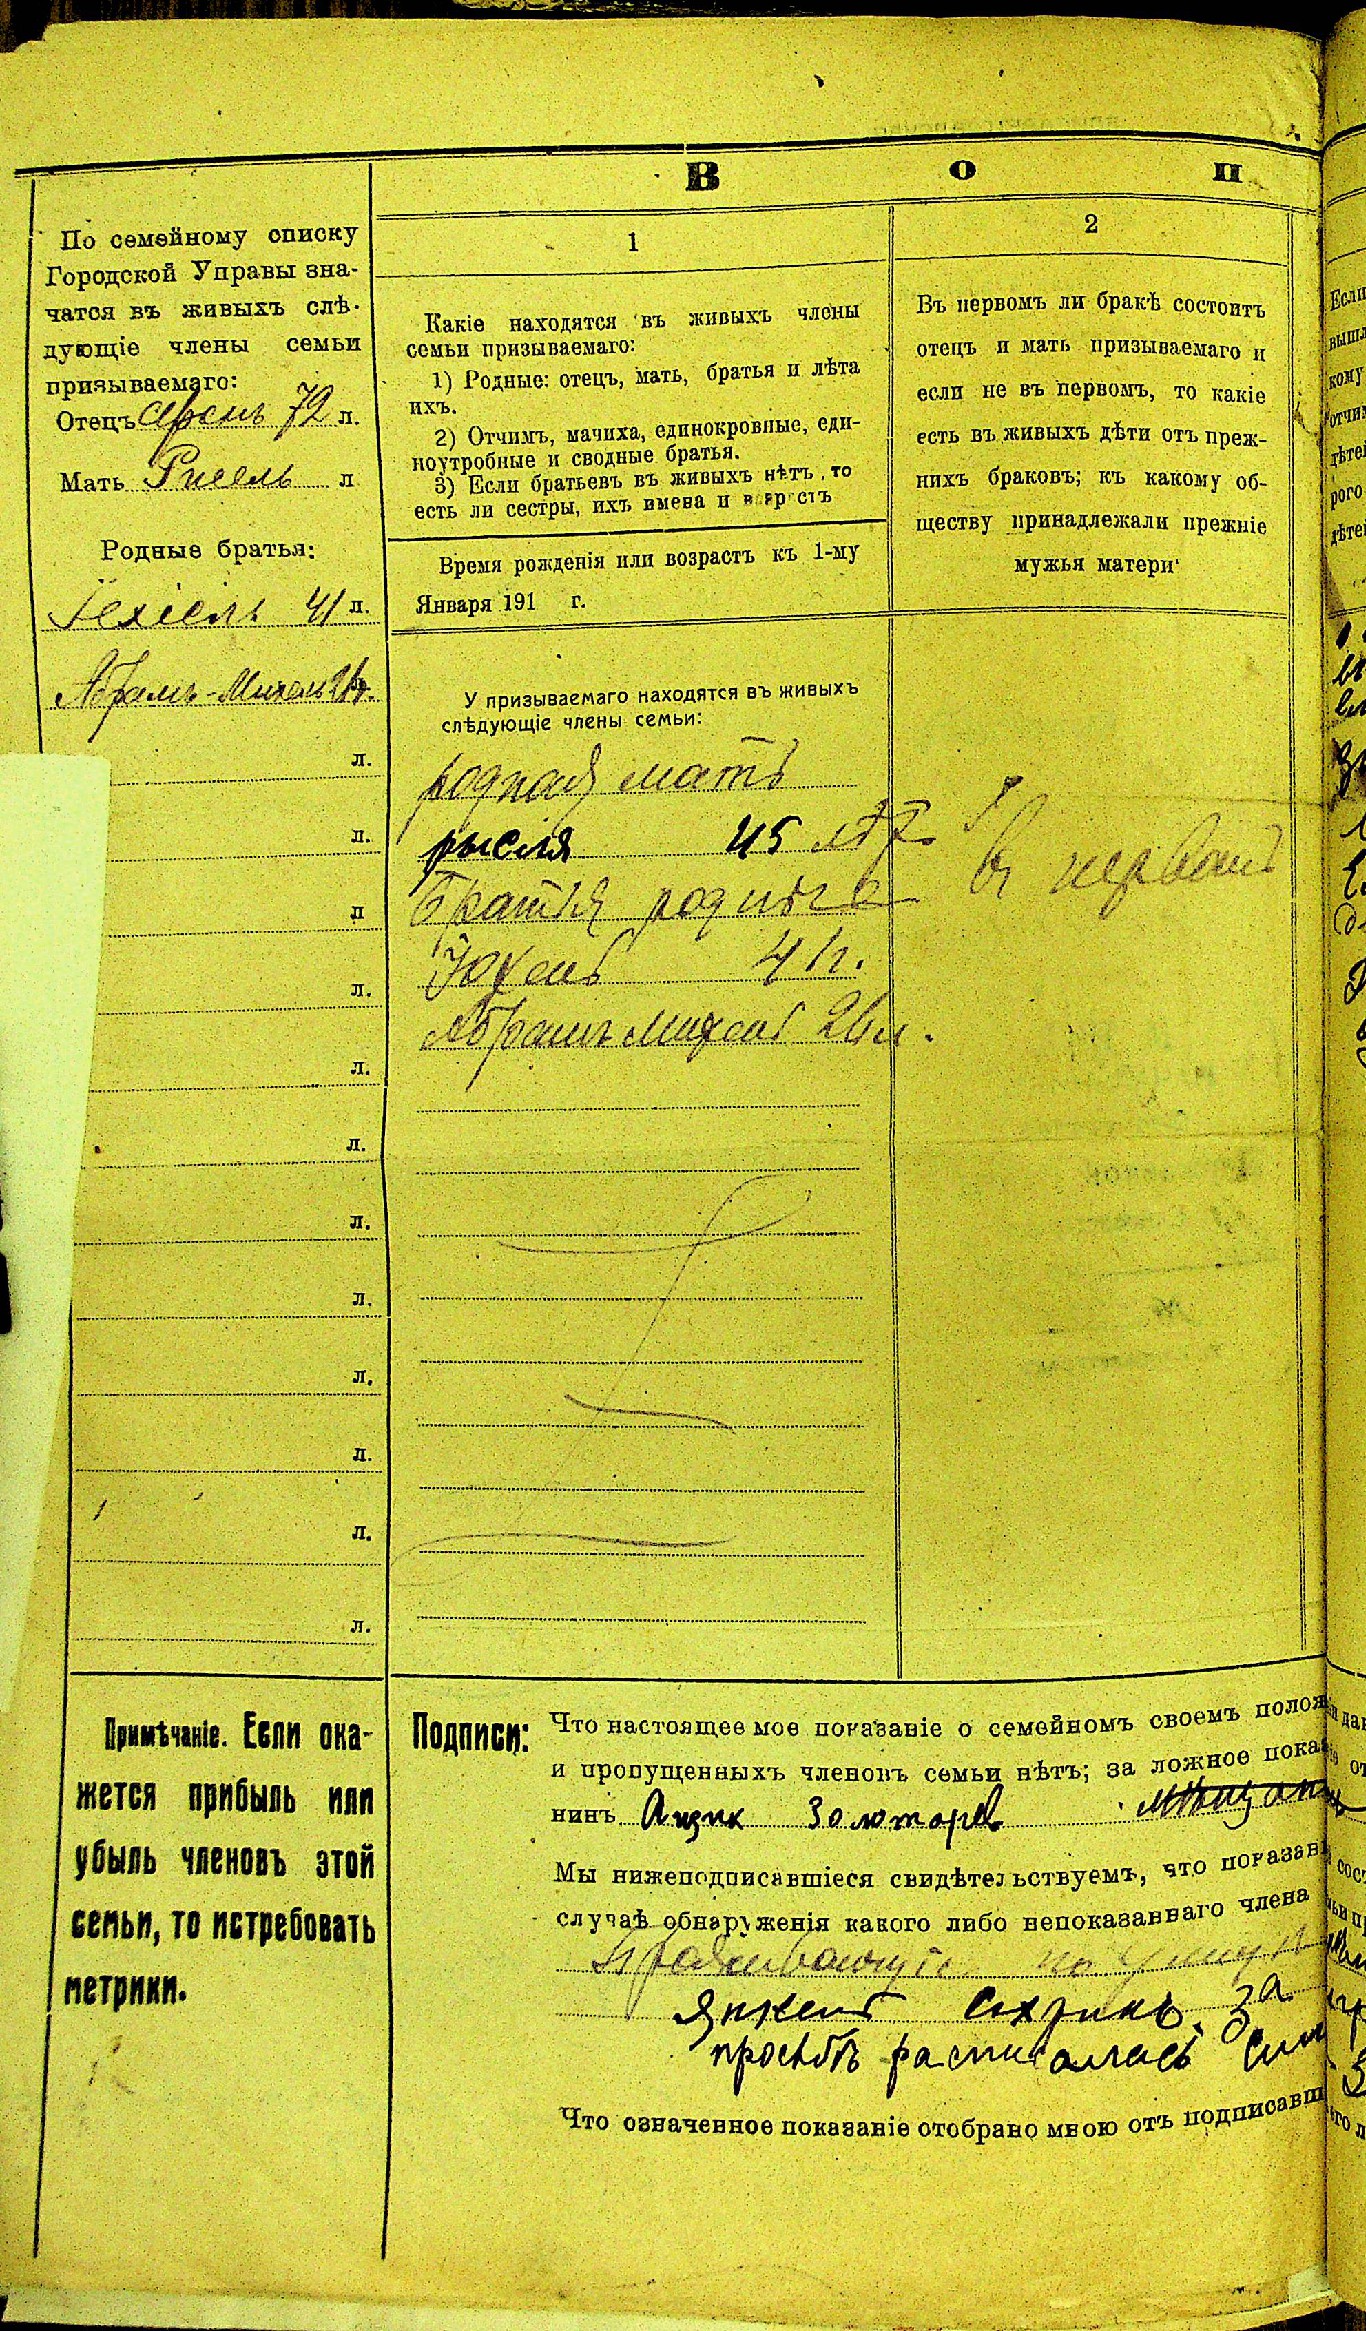 В о п
По семейному списку
Городской Управы зна-
чатся въ живыхъ слѣ-
дующіе члены семьи
призываемаго:
Отецъ 72 л.
Мать Рисель л
Родные братья:
Іехіель 41 л.
Абрамъ-Михель 26 л.
л.
л.
л
л.
л.
л.
л.
л.
л.
л.
л.
л.
Примѣчаніе. Если ока-
жется прибыль или
убыль членовъ этой
семьи, то истребовать
метрики.
1
Какіе находятся въ живыхъ члены
семьи призываемаго:
1) Родные: отецъ, мать, братья и лѣта
ихъ.
2) Отчимъ, мачиха, единокровные, еди-
ноутробные и сводные братья.
3) Если братьевъ въ живыхъ нѣтъ, то
есть ли сестры, ихъ имена и возрастъ
Время рожденія или возрастъ къ 1-му
Января 191 г.
У призываемаго находятся въ живыхъ
слѣдующіе члены семьи:
родная мать
рысля 45 лѣт
братья родные
Юхель 41 л.
Абрамъ Михель 26 л.
2
Въ первомъ ли бракѣ состоитъ
отецъ и мать призываемаго и
если не въ первомъ, то какіе
есть въ живыхъ дѣти отъ преж-
нихъ браковъ; къ какому об-
ществу принадлежали прежніе
мужья матери
въ первомъ
Подписи: Что настоящее мое показаніе о семейномъ своемъ полож
и пропущенныхъ членовъ семьи нѣтъ; за ложное пока
нинъ Айзик Золотарев
Мы нижеподписавшіеся свидѣтельствуемъ, что показан
случаѣ обнаруженія какого либо непоказаннаго члена
Проживающіе по улицѣ
Янкель Сахринъ. За
просьбѣ расписалась
Что означенное показаніе отобрано мною отъ подписавш